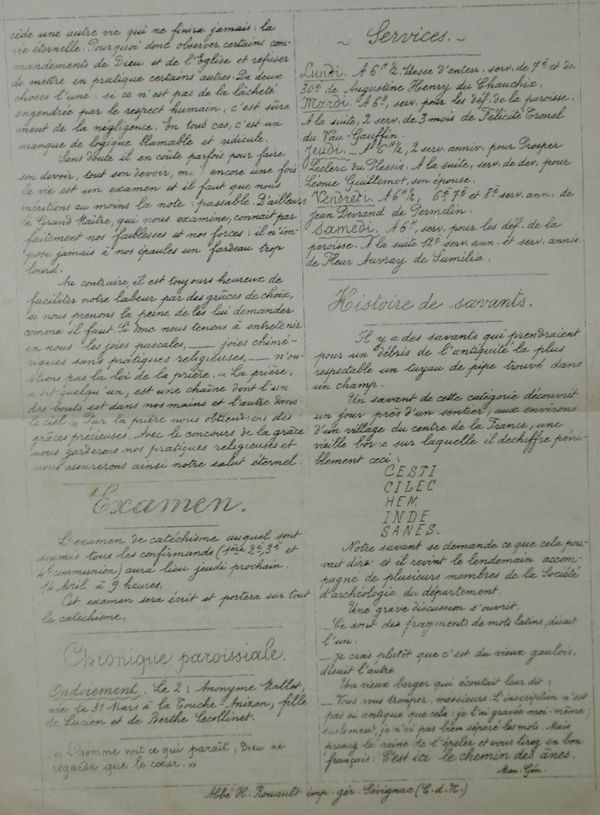 cède une autre vie qui ne finira jamais : la
vie éternelle. Pourquoi donc observer certains com-
mandements de Dieu et de l'Eglise et refuser
de mettre en pratique certains autres. De deux
choses l'une : si ce n'est pas de la lâcheté
engendrée par le respect humain, c'est sûre
ment de la négligence. En tous cas, c'est un
manque de logique blamable et ridicule.
Sans doute il en coûte parfois pour faire
son devoir, tout son devoir, encore une fois
la vie est un examen et il faut que nous
méritions au moins la note : passable. D'ailleurs
le Grand Maître, qui nous examine, connait par
faitement nos faiblesses et nos forces : il n'im-
pose jamais à nos épaules un fardeau trop
lourd.
Au contraire, il est toujours heureux de
faciliter notre labeur par des grâces de choix,
si nous prenons la peine de les lui demander
comme il faut. Si donc nous tenons à entretenir
en nous les joies pascales, — joies chimé-
riques sans pratiques religieuses, — n'ou-
blions pas la loi de la prière. « La prière,
a dit quelqu'un, est une chaîne dont l'un
des bouts est dans nos mains et l'autre dans
le ciel ». Par la prière nous obtiendrons des
grâces précieuses. Avec le concours de la grâce
nous garderons nos pratiques religieuses et
nous assurerons ainsi notre salut éternel.
Examen.
L'examen de catéchisme auquel sont
soumis tous les confirmands (1ère 2e, 3e et
4e communion) aura lieu jeudi prochain.
14 Avril à 9 heures.
Cet examen sera écrit et portera sur tout
le catéchisme.
Chronique paroissiale.
Ondoiement. Le 2 : Anonyme Mallot,
née le 31 Mars à la Touche Anizan, fille
de Lucien et de Berthe Lecollinet.
« L'homme voit ce qui paraît, Dieu ne
regarde que le cœur. »
~ Services. ~
Lundi. A 6h ½. Messe d'enterr. serv. de 7e et de
30e de Augustine Henry du Chauchix.
Mardi. A 6h, serv. pour les déf. de la paroisse.
A la suite, 2 serv. de 3 mois de Félicité
du Vau-Gauffin.
Jeudi. A 6h ¼, 2 serv. anniv. pour Prosper
Leclerc du Plessis. A la suite, serv. de dev. pour
Léonie Guillemot, son épouse.
Vendredi. A 6h ½, 6e 7e et 8e serv. ann. de
Jean Devrand de Permelin.
Samedi. A 6h, serv. pour les déf. de la
paroisse. A la suite 12e serv. ann. et serv. anniv.
de Fleur Auvray de
Histoire de savants.
Il y a des savants qui prendraient
pour un débris de l'antiquité la plus
respectable un tuyau de pipe trouvé dans
un champ.
Un savant de cette catégorie découvrit
un jour près d'un sentier, aux environs
d'un village du centre de la France, une
vieille borne sur laquelle il dechiffre péni-
blement ceci :
CESTI
CILEC
HEM.
INDE
SANES.
Notre savant se demande ce que cela pou-
vait dire et il revint le lendemain accom-
pagné de plusieurs membres de la Société
d'archéologie du département.
Une grave discussion s'ouvrit.
— Ce sont des fragments de mots latins, disait
l'un.
— Je crois plutôt que c'est du vieux gaulois,
disait l'autre
Un vieux berger qui écoutait leur dit :
— Vous vous trompez, messieurs. L'inscription n'est
pas si antique que cela : je l'ai gravée moi-même ;
seulement, je n'ai pas bien séparé les mots. Mais
prenez la peine de l'épeler et vous lirez en bon
français : C'est ici le chemin des ânes.
Abbé H. Rouault imp. gér. Sévignac (C. d. N.)